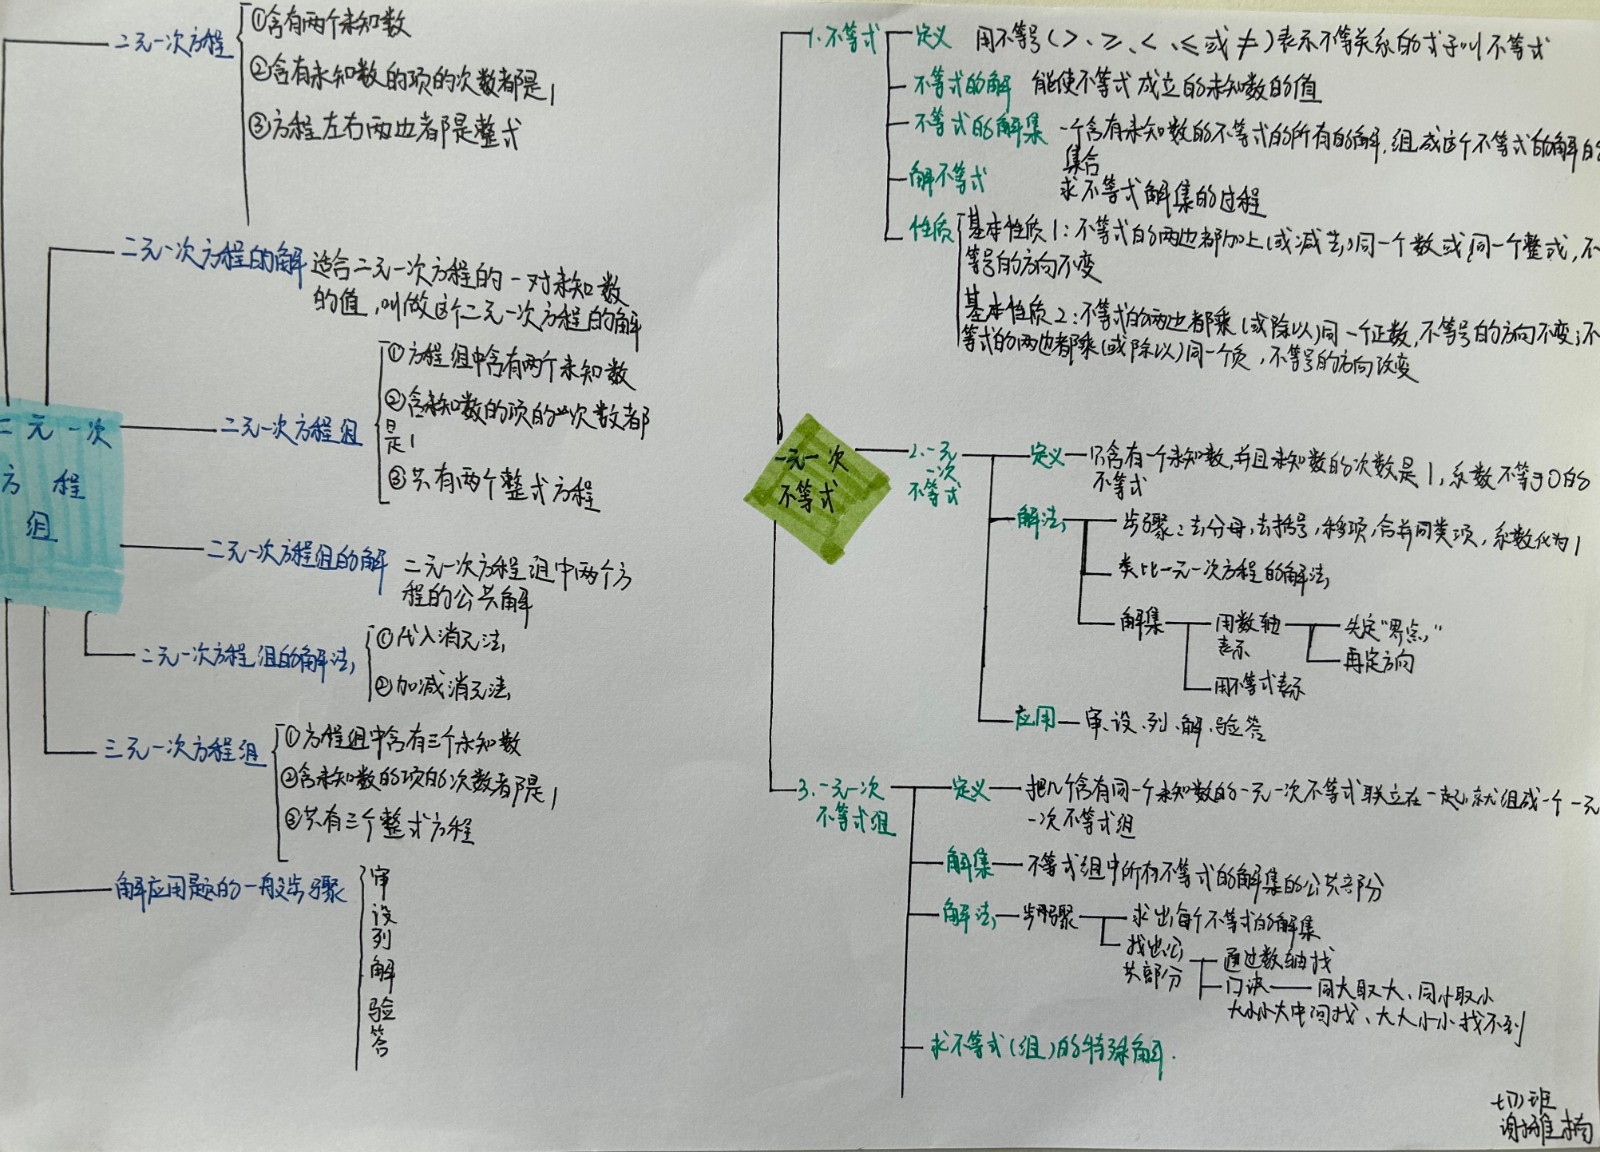 二元一次方程组
二元一次方程
①含有两个未知数
②含有未知数的项的次数都是1
③方程左右两边都是整式
二元一次方程的解
适合二元一次方程的一对未知数
的值,叫做这个二元一次方程的解
二元一次方程组
①方程组中含有两个未知数
②含未知数的项的次数都
是1
③共有两个整式方程
二元一次方程组的解
二元一次方程组中两个方
程的公共解
二元一次方程组的解法
①代入消元法
②加减消元法
三元一次方程组
①方程组中含有三个未知数
②含未知数的项的次数都是1
③共有三个整式方程
解应用题的一般步骤
审
设
列
解
验
答
一元一次
不等式
1.不等式
定义 用不等号(>、≥、<、≤或≠)表示不等关系的式子叫不等式
不等式的解 能使不等式成立的未知数的值
不等式的解集 一个含有未知数的不等式的所有的解,组成这个不等式的解的
集合
解不等式 求不等式解集的过程
性质
基本性质1:不等式的两边都加上(或减去)同一个数或同一个整式,不
等号的方向不变
基本性质2:不等式的两边都乘(或除以)同一个正数,不等号的方向不变;不
等式的两边都乘(或除以)同一个负,不等号的方向改变
2.一元
一次
不等式
定义 只含有一个未知数,并且未知数的次数是1,系数不等于0的
不等式
解法
步骤:去分母,去括号,移项,合并同类项,系数化为1
类比一元一次方程的解法
解集
用数轴
表示
先定“界点”
再定方向
用不等式表示
应用 审、设、列、解、验答
3.一元一次
不等式组
定义 把几个含有同一个未知数的一元一次不等式联立在一起,就组成一个一元
一次不等式组
解集 不等式组中所有不等式的解集的公共部分
解法 步骤
求出每个不等式的解集
找出公
共部分
通过数轴找
口诀 同大取大、同小取小
大小小大中间找、大大小小找不到
求不等式(组)的特殊解.